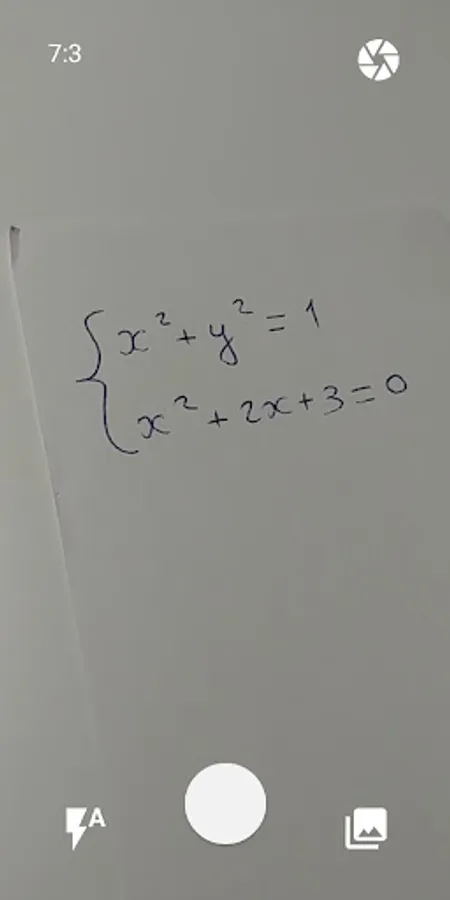 7:3
x² + y² = 1
x² + 2x + 3 = 0
A